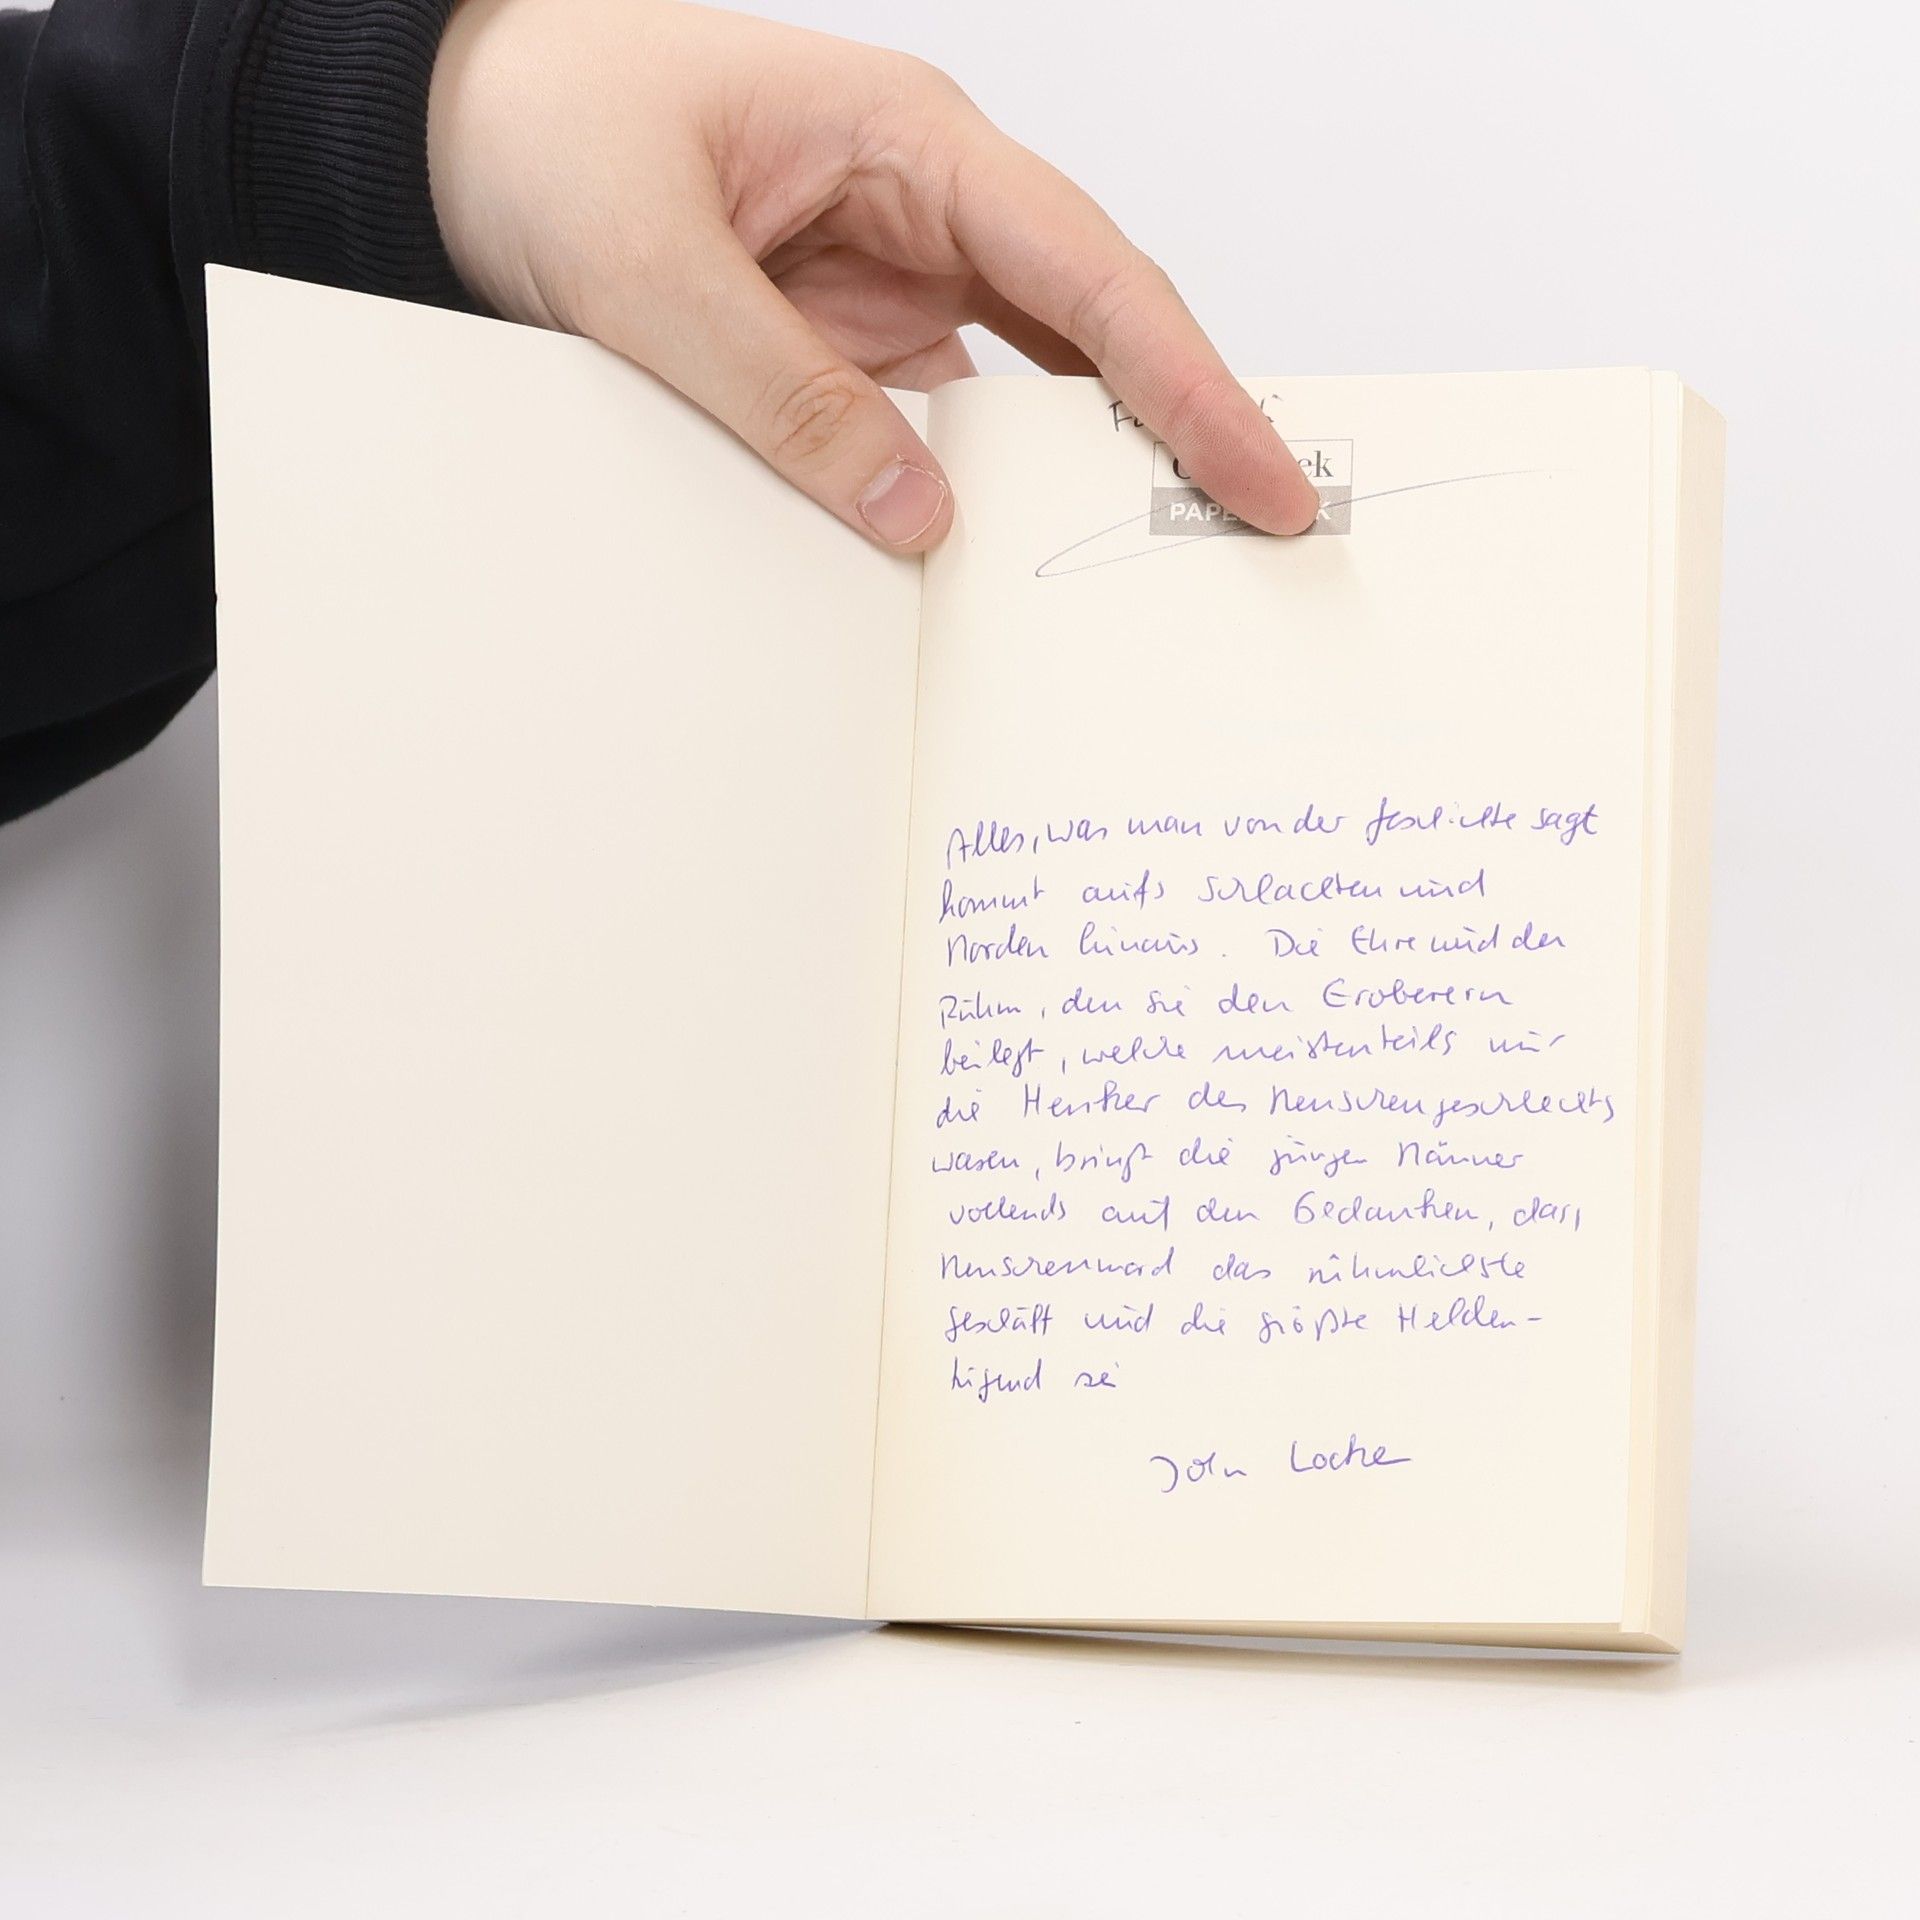 ek
PAPE K
Alles, was man von der Geschichte sagt
kommt aufs Schlachten und
Morden hinaus. Die Ehre und der
Ruhm, den sie den Eroberern
beilegt, welche meistenteils nur
die Henker des Menschengeschlechts
waren, bringt die jungen Männer
vollends auf den Gedanken, dass
Menschenmord das rühmlichste
Geschäft und die größte Helden-
tugend sei
John Locke